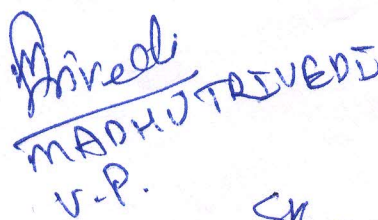 Trivedi
MADHU TRIVEDI
V.P.